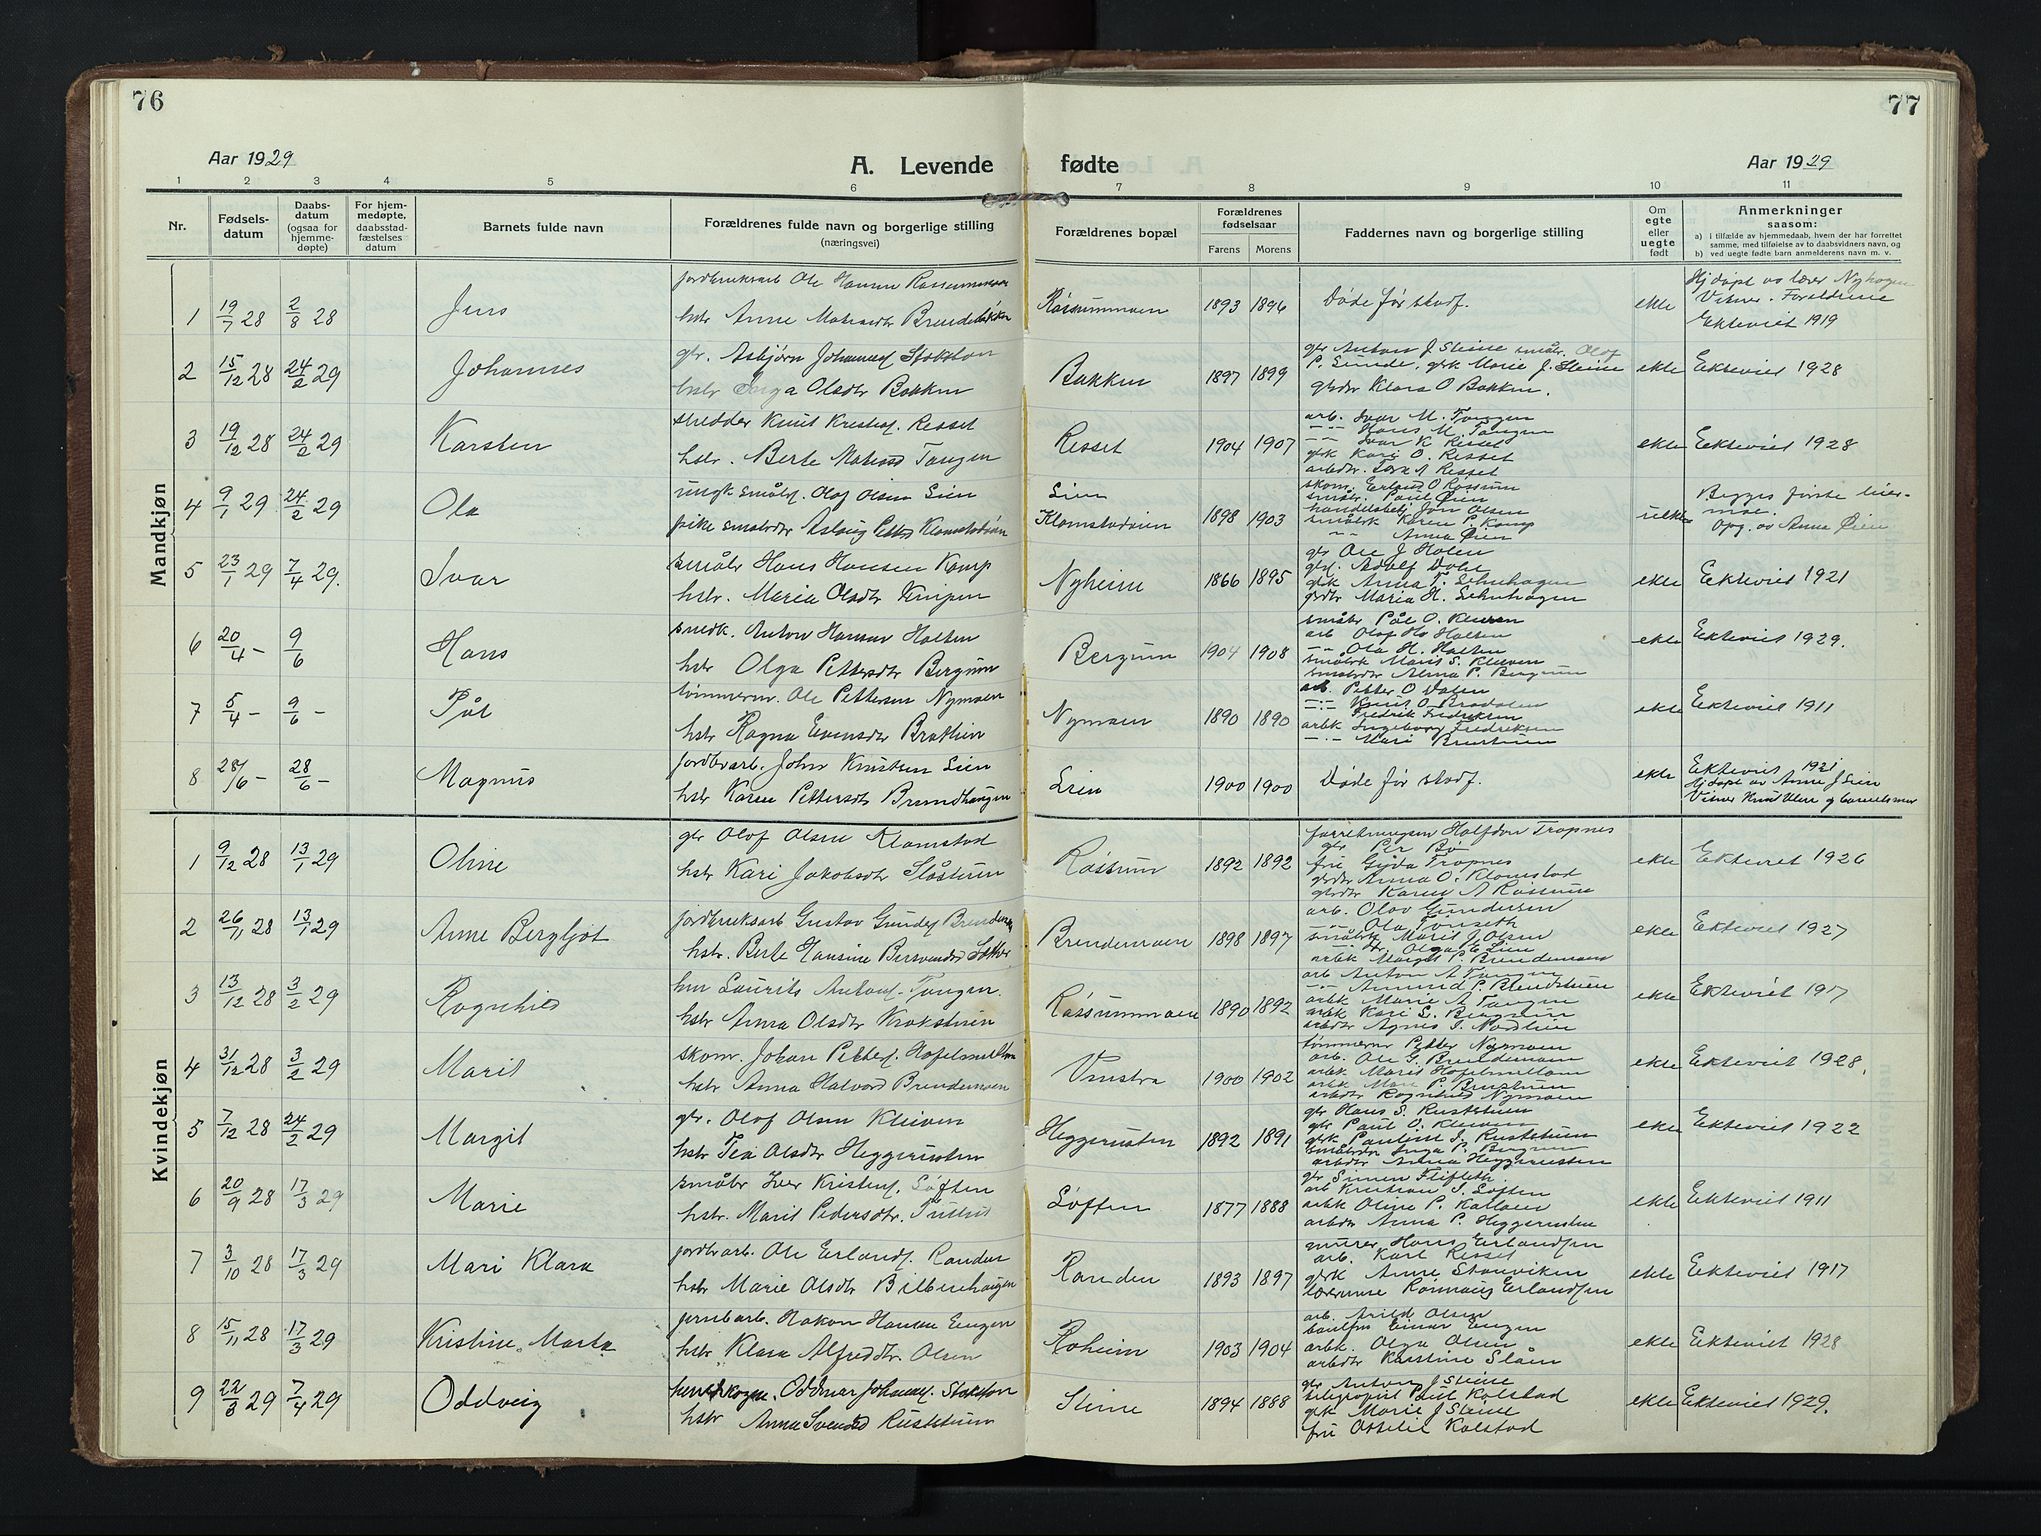 76
77
Aar 1929
A. Levende fødte
Aar 1929
1 2 3 4 5 6 7 8 9 10 11
Nr.
Fødsels-
datum
Daabs-
datum
(ogsaa for
hjemme-
døpte)
For hjem-
medøpte,
daabsstad-
fæstelses
datum
Barnets fulde navn
Forældrenes fulde navn og borgerlige stilling
(næringsvei)
Forældrenes bopæl
Forældrenes
fødselsaar
Farens Morens
Faddernes navn og borgerlige stilling
Om
egte
eller
uegte
født
Anmerkninger
saasom:
a) i tilfælde av hjemmedaab, hvem der har forrettet
samme, med tilføielse av to daabsvidners navn, og
b) ved uegte fødte barn anmelderens navn m. v.
Mandkjøn
1 19/7 28 2/8 28 Jens
jordbruksarb Ole Hansen Røssummoen
hstr Anne Brendebakken
Røssummoen 1893 1896 Døde før stadf. ekte
Hjdøpt av lærer Nyhagen
Vitner. Foreldrene
Ekteviet 1919
2 15/12 28 24/2 29 Johannes
gbr. Asbjørn Johannesf Stokston
hstr Inga Olsdtr Bakken
Bakken 1897 1899
gbr Anton J Steine småbr. Olof
P. Sunde, gbrk Marie J. Steine
gbrdtr Klara O Bakken.
ekte Ekteviet 1928
3 19/12 28 24/2 29 Karsten
skredder Knut Kristesf. Risset
hstr. Berte Tangen
Risset 1904 1907
arb. Ivar M. Tangen
-"- Hans M Tangen
-"- Ivar K Risset
gbrk Kari O. Risset
ekte Ekteviet 1928
4 9/1 29 24/2 29 Ola
ungk småbrf. Olof Olsen Lien
pike småbrdtr Aslaug Pettersd Klomstadøien
Lien
Klomstadøien 1898 1903
skom. Erland O Røssum
småbr. Paul Øien
handelsbetj Jon Olsen
småbrk Karen P. Kamp
-"- Anna Øien
uekte
Begges første leier-
mål.
Opg. av Anna Øien
5 23/1 29 7/4 29. Ivar
småbr Hans Hansen Kamp
hstr. Maria Olsdtr Kinpen
Nyheim 1866 1895
gbr Ole J Holen
gbrf. Adolf Dahl
gbrk Anna T. Schuhagen
gbrdtr Maria H. Schuhagen
ekte Ekteviet 1921
6 20/4 - 9/6 Hans
snedk. Anton Hansen Holten
hstr Olga Pettersdtr Bergum
Bergum 1904 1908
småbr Pål O. Kleiven
arb Olof Hs Holten
-"- Ola H. Holten
småbrk Marit S. Kleiven
småbrdtr Alma P. Bergum
ekte Ekteviet 1929.
7 5/4 - 9/6 - Pål
tømmerm. Ole Pettersen Nymoen
hstr Ragna Evensdtr Bratlien
Nymoen 1890 1890
arb. Petter O Dalen
-"- Knut O Bradalen
Fredrik Fredriksen
arbk Ingeborg Fredriksen
-"- Mari Brustuen
ekte Ekteviet 1911
8 28/6 - 28/6 - Magnus
jordbrarb. John Knutsen Lien
hstr Karen Pettersdtr Brendhaugen
Lien 1900 1900 Døde før stadf. ekte
Ekteviet 1921
Hjdøpt av Anne J Lien
Kvindekjøn
1 9/12 28 13/1 29 Oline
gbr Olof Olsen Klomstad
hstr Kari Jakobsdtr Slåstuen
Røssum 1892 1892
forretningsm Halfdan Tropnes
gbr Per Bø
fru Gyda Tropnes
gbrdtr Anna O. Klomstad
gbrdtr Karen A Røssum
ekte Ekteviet 1926
2 26/11 28 13/1 29 Anne Bergljot
jordbruksarb Gustav Gundersf Brendemoen
hstr. Berte Hansine
Brendemoen 1898 1897
arb. Olav Gundersen
-"- Ola Tonseth
småbrk Marit J Olsen
-"- dtr. Olga E Lien
arbk Margit P. Brendemoen
ekte Ekteviet 1927
3 13/12 28 3/2 29 Ragnhild
hm Laurits Antonsf. Tangen.
hstr Anna Olsdtr Krokstuen
Røssummoen 1890 1892
arb Anton A Tangen
-"- Amund P. Blendstuen
arbk Marie A Tangen
arbk Kari L. Bergum
arbdtr Agnes S. Nordlien
ekte Ekteviet 1917
4 31/12 28 3/2 29 Marit
skom. Johan Pettersf.
hstr Anna Halvord Brendemoen
Vinstra 1900 1902
tømmerm Petter Nymoen
arb. Ole G. Brendemoen
arbk Mari P. Brustuen
arbdtr Ragnhild Nymoen
ekte Ekteviet 1928.
5 7/12 28 24/2 29 Margit
gbr. Olof Olsen Kleiven
hstr Tea Olsdtr Heggerusten
Heggerusten 1892 1891
gbr Hans S. Ruststuen
gbr Paul O. Kleiven
gbrk Pauline S. Ruststuen
småbrdtr Inga P. Bergum
arbdtr Anna Heggerusten
ekte Ekteviet 1922
6 20/9 28 17/3 29 Marie
småbr Iver Kristensf. Løften
hstr. Marit Pedersdtr.
Løften 1877 1888
gbr Simen Flifleth.
arb Kristian S. Løften
arbk Oline P. Kolloen
arbdtr Anna P. Heggerusten
ekte Ekteviet 1911
7 3/10 28 17/3 29 Mari Klara
jordbrarb. Ole Erlandsf. Randen
hstr Marie Olsdtr Bilbenhaugen
Randen 1893 1897
murer Hans Erlandsen
arb. Karl Risset
gbrk Anne Stauviken
lærerinne Rønnaug Erlandsen
ekte Ekteviet 1917
8 15/11 28 17/3 29 Kristine Marta
jernbarb. Hakon Hansen Engen
hstr Klara Alfreddtr. Olsen
Roheim 1903 1904
arb. Arild Olsen
Einar Engen
arbk. Olga Olsen
arbdtr Kristine Slåen
ekte Ekteviet 1928
9 22/3 29 7/4 29 Oddveig
Oddmar Johannesf. Stokston
hstr Anna Svendsd Ruststuen
Steine 1894 1888
gbr Anton J Steine
telegrafist Paul Kolstad
gbrk Marie J Steine
fru Ottelie Kolstad
ekte Ekteviet 1929.